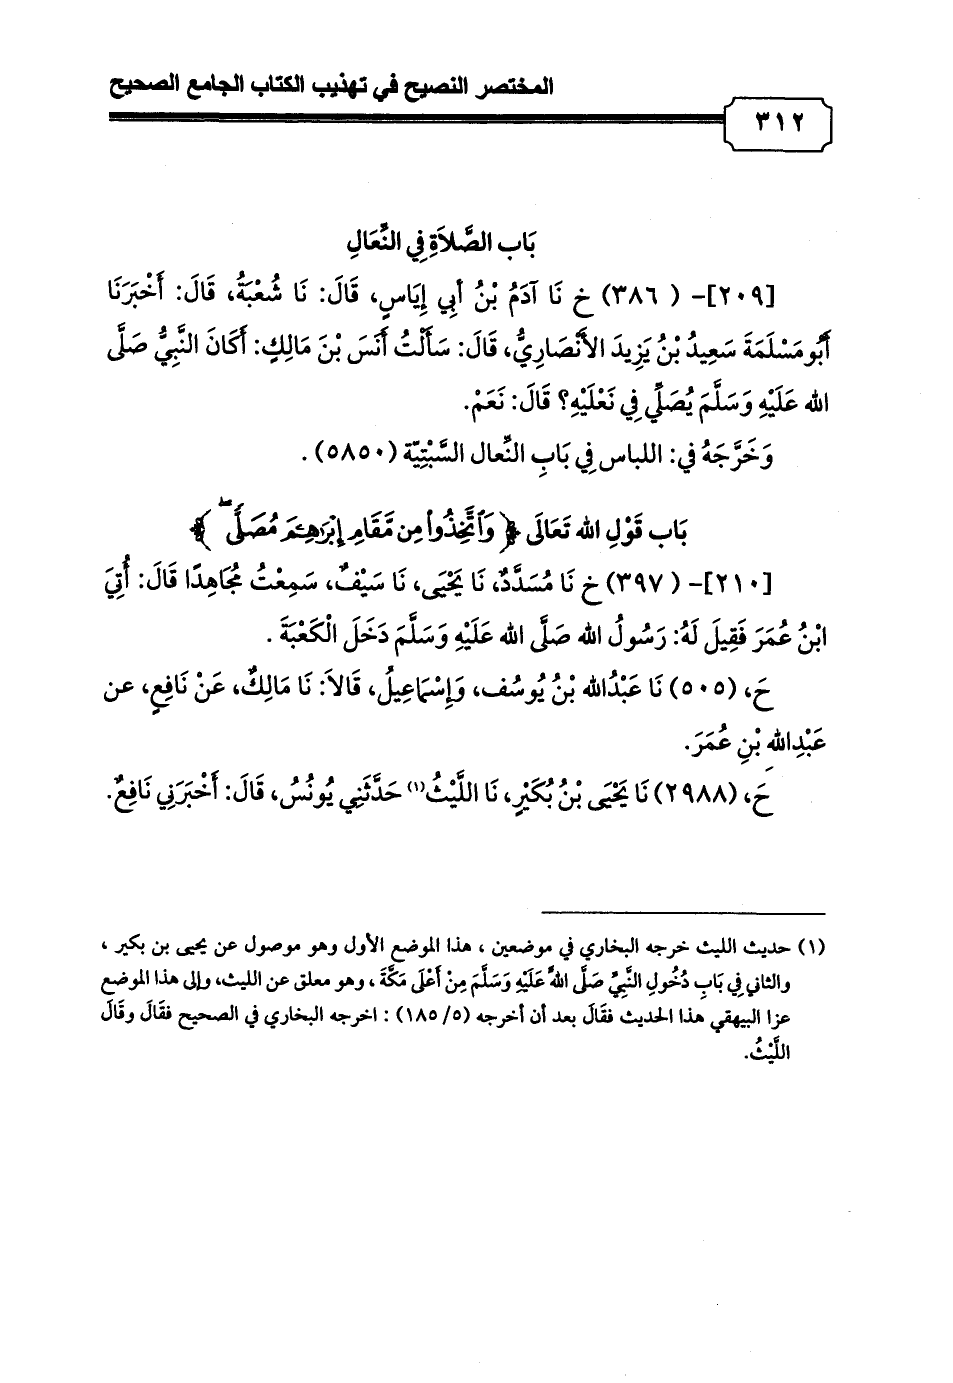 المختصر النصيح في تهذيب الكتاب الجامع الصحيح
٣١٢
بَاب الصَّلاَةِ فِي النِّعَالِ
[٢٠٩]- ( ٣٨٦) خ نَا آدَمُ بْنُ أبِي إيَاسٍ، قَالَ: نَا شُعْبَةُ، قَالَ: أَخْبَرَنَا
أَبُو مَسْلَمَةَ سَعِيدُ بْنُ يَزِيدَ الأَنْصَارِيُّ، قَالَ: سَأَلْتُ أَنَسَ بْنَ مَالِكٍ: أَكَانَ النَّبِيُّ صَلَّى
الله عَلَيْهِ وَسَلَّمَ يُصَلِّي فِي نَعْلَيْهِ؟ قَالَ: نَعَمْ.
وَخَرَّجَهُ في: اللباس فِي بَابِ النِّعال السَّبْتِيّة (٥٨٥٠) .
بَاب قَوْلِ الله تَعَالَى ﴿ وَٱتَّخِذُواْ مِن مَّقَامِ إِبْرَٰهِـۧمَ مُصَلًّى ۖ ﴾
[٢١٠]- ( ٣٩٧) خ نَا مُسَدَّدٌ، نَا يَحْيَى، نَا سَيْفٌ، سَمِعْتُ مُجَاهِدًا قَالَ: أُتِيَ
ابْنُ عُمَرَ فَقِيلَ لَهُ: رَسُولُ الله صَلَّى الله عَلَيْهِ وَسَلَّمَ دَخَلَ الْكَعْبَةَ .
حَ، (٥٠٥) نَا عَبْدُالله بْنُ يُوسُف، وَإِسْمَاعِيلُ، قَالاَ: نَا مَالِكٌ، عَنْ نَافِعٍ، عن
عَبْدِالله بْنِ عُمَرَ.
حَ، (٢٩٨٨) نَا يَحْيَى بْنُ بُكَيْرٍ، نَا اللَّيْثُ(١) حَدَّثَنِي يُونُسُ، قَالَ: أَخْبَرَنِي نَافِعٌ.
(١) حديث الليث خرجه البخاري في موضعين ، هذا الموضع الأول وهو موصول عن يحيى بن بكير ،
والثاني فِي بَابِ دُخُولِ النَّبِيِّ صَلَّى اللهُ عَلَيْهِ وَسَلَّمَ مِنْ أَعْلَى مَكَّةَ ، وهو معلق عن الليث، وإلى هذا الموضع
عزا البيهقي هذا الحديث فقَالَ بعد أن أخرجه (٥/ ١٨٥) : اخرجه البخاري في الصحيح فقَالَ وقَالَ
اللَّيْثُ.